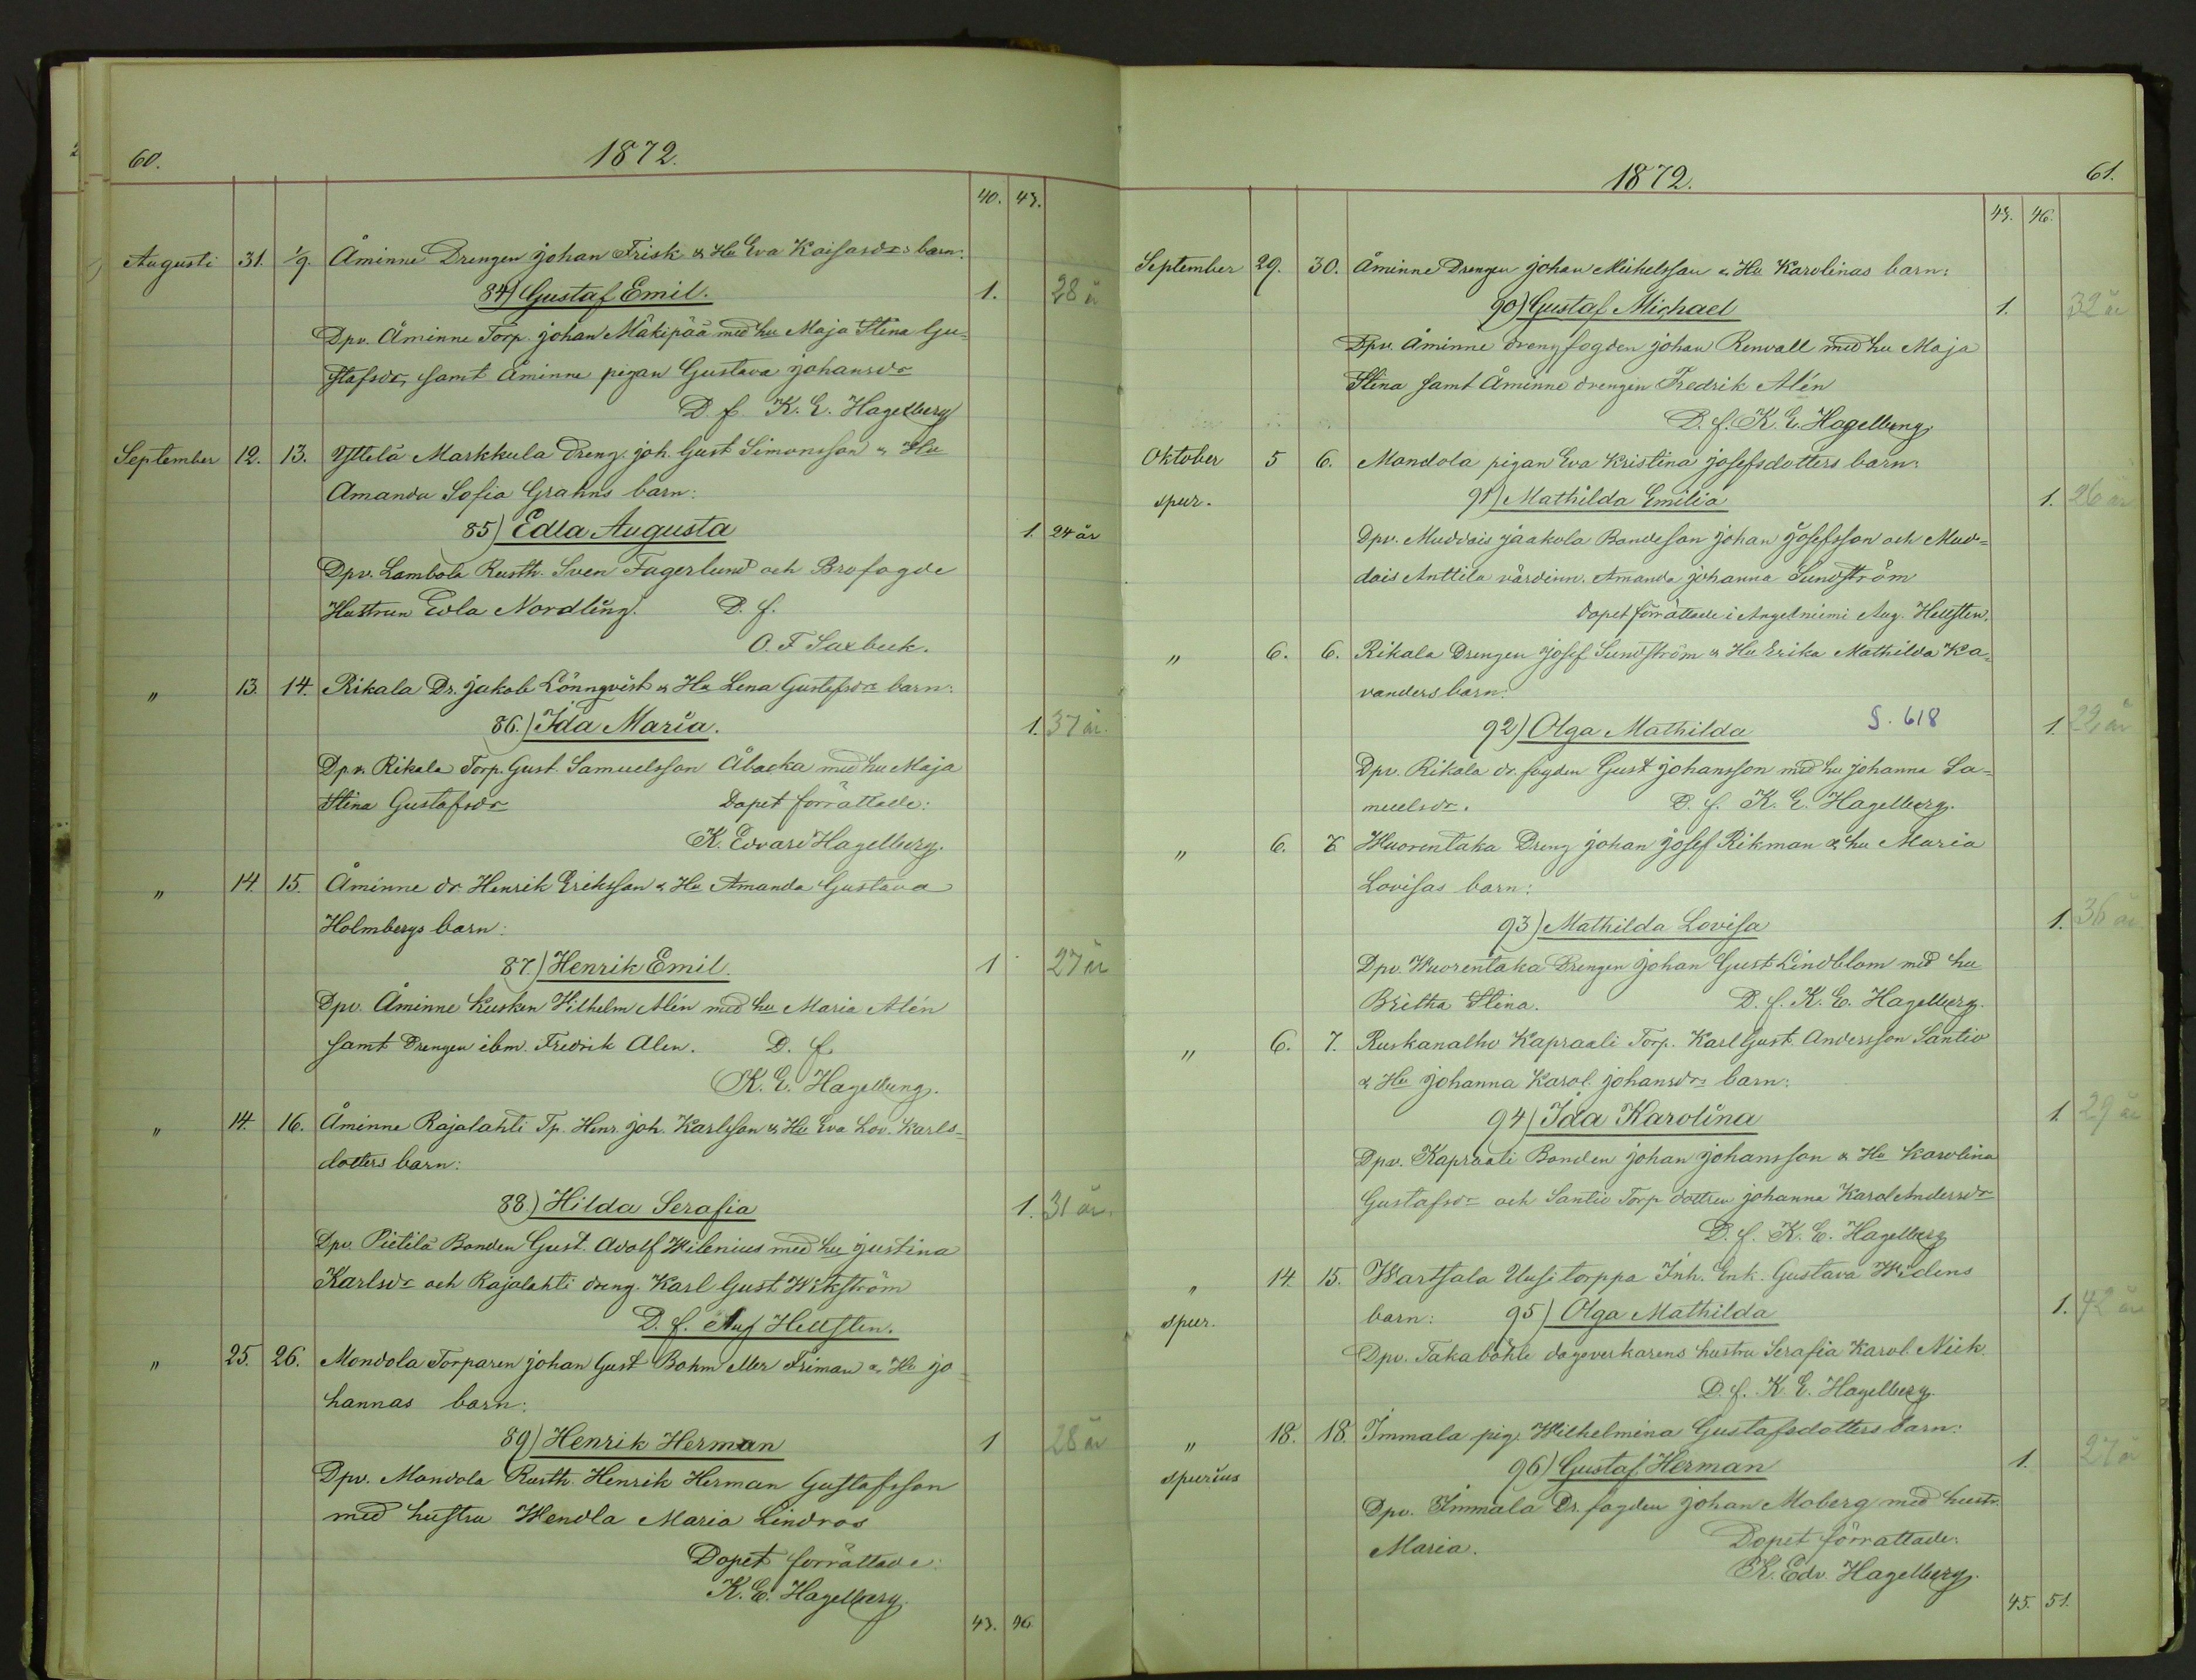 60.
1872.
40. 43.
Augusti 31. 1/9. Åminne Drengen Johan Frisk & Hu Eva Kaisasdrs barn:
84) Gustaf Emil. 1. 28 år
Dpv. Åminne Torp. Johan Mäkipää med hu Maja Stina Gu-
stafsdr, samt Åminne pigan Gustava Johansdr
D. f. K. E. Hagelberg
September 12. 13. Yttelä Markkula Dreng. Joh. Gust Simonsson & Hu
Amanda Sofia Grahns barn:
85) Edla Augusta 1. 24 år
Dpv. Lambola Rusth. Sven Fagerlund och Brofogde
Hustrun Edla Nordling. D. f.
O. F. Saxbeck.
" 13. 14. Rikala Dr. Jakob Lönnqvist & Hu Lena Gustafsdrs barn:
86.) Ida Maria. 1. 37 år.
Dpv. Rikala Torp. Gust. Samuelsson Åbacka med hu Maja
Stina Gustafsdr Dopet förrättade:
K. Edvard Hagelberg.
" 14. 15. Åminne dr Henrik Eriksson & Hu Amanda Gustava
Holmbergs barn:
87.) Henrik Emil. 1 27 år
Dpv. Åminne Kusken Wilhelm Alén med hu Maria Alén
samt Drengen ibm. Fredrik Alen. D. f.
K. E. Hagelberg.
" 14. 16. Åminne Rajalahti Tp. Henr. Joh. Karlsson & Hu Eva Lov. Karls-
dotters barn:
88) Hilda Serafia 1. 31 år.
Dpv. Pietilä Bonden Gust. Adolf Wilenius med hu Justina
Karlsdr och Rajalahti dreng. Karl Gust Wikström
D. f. Aug Hellsten.
" 25. 26. Mondola Torparen Johan Gust Bohm eller Friman & Hu Jo-
hannas barn:
89) Henrik Herman 1 28 år
Dpv. Mondola Rusth. Henrik Herman Gustafsson
med hustru Wendla Maria Lindros
Dopet förrättade:
K. E. Hagelberg.
43. 46.
1872.
61.
43. 46.
September 29. 30. Åminne Drengen Johan Michelsson & Hu Karolinas barn:
90) Gustaf Michael 1. 32 år
Dpv. Åminne drengfogden Johan Renvall med hu Maja
Stina samt Åminne drengen Fredrik Alén
D. f. K. E. Hagelberg.
Oktober 5 6. Mandola pigan Eva Kristina Josefsdotters barn:
spur. 91) Mathilda Emilia 1. 26 år
Dpv. Muddais Jaakola Bondeson Johan Josefsson och Mud-
dais Anttila värdinn. Amanda Johanna Sundström
Dopet förrättade i Angelniemi Aug. Hellsten.
" 6. 6. Rikala Drengen Josef Sundström & Hu Erika Mathilda Ka-
vanders barn:
92) Olga Mathilda S. 618 1. 22 år
Dpv. Rikala dr. fogden Gust Johansson med hu Johanna Sa-
muelsdr. D. f. K. E. Hagelberg.
" 6. 7. Wuorentaka Dreng Johan Josef Rikman & hu Maria
Lovisas barn:
93) Mathilda Lovisa 1. 36 år
Dpv. Wuorentaka Drengen Johan Gust Lindblom med hu
Britha Stina. D. f. K. E. Hagelberg.
" 6. 7. Ruskanalho Kapraali Torp. Karl Gust. Andersson Santio
& Hu Johanna Karol. Johansdrs barn:
94) Ida Karolina 1. 29 år
Dpv. Kapraali Bonden Johan Johansson & Hu Karolina
Gustafsdr och Santio Torp dottren Johanna Karol Andersdr
D. f. K. E. Hagelberg
" 14. 15. Wartsala Uusitorppa Inh. Enk. Gustava Widens
spur. barn: 95) Olga Mathilda 1. 42 år
Dpv. Takaböhle dagsverkarens hustru Serafia Karol. Niek.
D. f. K. E. Hagelberg.
" 18. 18. Immala pig. Wilhelmina Gustafsdotters barn:
spurius 96) Gustaf Herman 1. 27 år
Dpv. Immala Dr. fogden Johan Moberg med hustr.
Maria. Dopet förrättade:
K. Edv. Hagelberg.
45. 51.